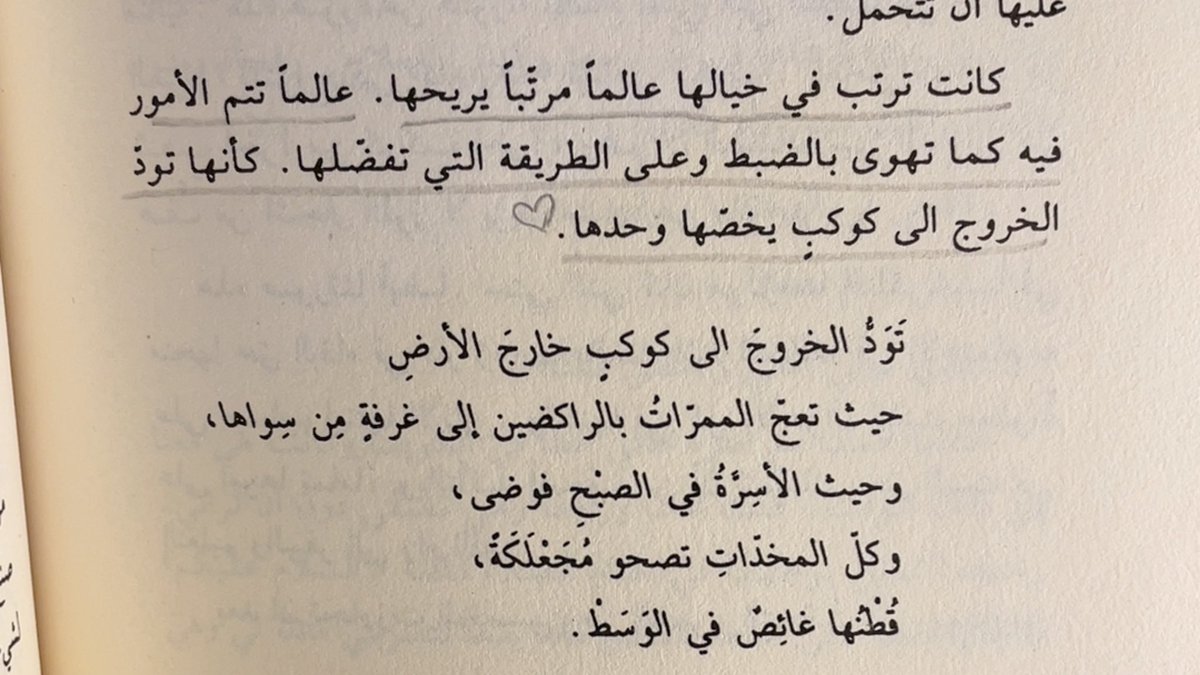 عليها أن تتحمل.
كانت ترتب في خيالها عالماً مرتّباً يريحها. عالماً تتم الأمور
فيه كما تهوى بالضبط وعلى الطريقة التي تفضّلها. كأنها تودّ
الخروج الى كوكبٍ يخصّها وحدها.
تَوَدُّ الخروجَ الى كوكبٍ خارجَ الأرضِ
حيث تعجّ الممرّاتُ بالراكضين إلى غرفةٍ مِن سِواها،
وحيث الأسِرَّةُ في الصبْحِ فوضى،
وكلّ المخدّاتِ تصحو مُجَعْلَكَةً،
قُطْنُها غائِصٌ في الوَسَطْ.